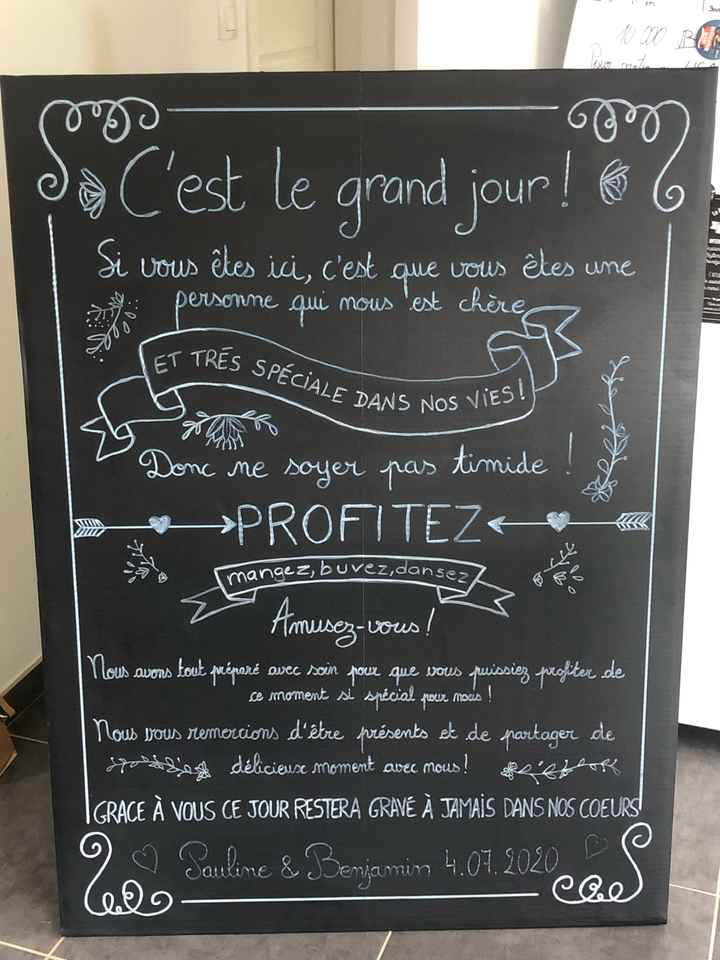 10 000
C'est le grand jour !
Si vous êtes ici, c'est que vous êtes une
personne qui nous est chère
ET TRÉS SPÉCIALE DANS NOS VIES !
Donc ne soyer pas timide !
PROFITEZ
mangez, buvez, dansez
Amusez-vous !
Nous avons tout préparé avec soin pour que vous puissiez profiter de
ce moment si spécial pour nous !
Nous vous remercions d'être présents et de partager de
délicieux moment avec nous !
GRACE À VOUS CE JOUR RESTERA GRAVÉ À JAMAIS DANS NOS COEURS
Pauline & Benjamin 4.07.2020